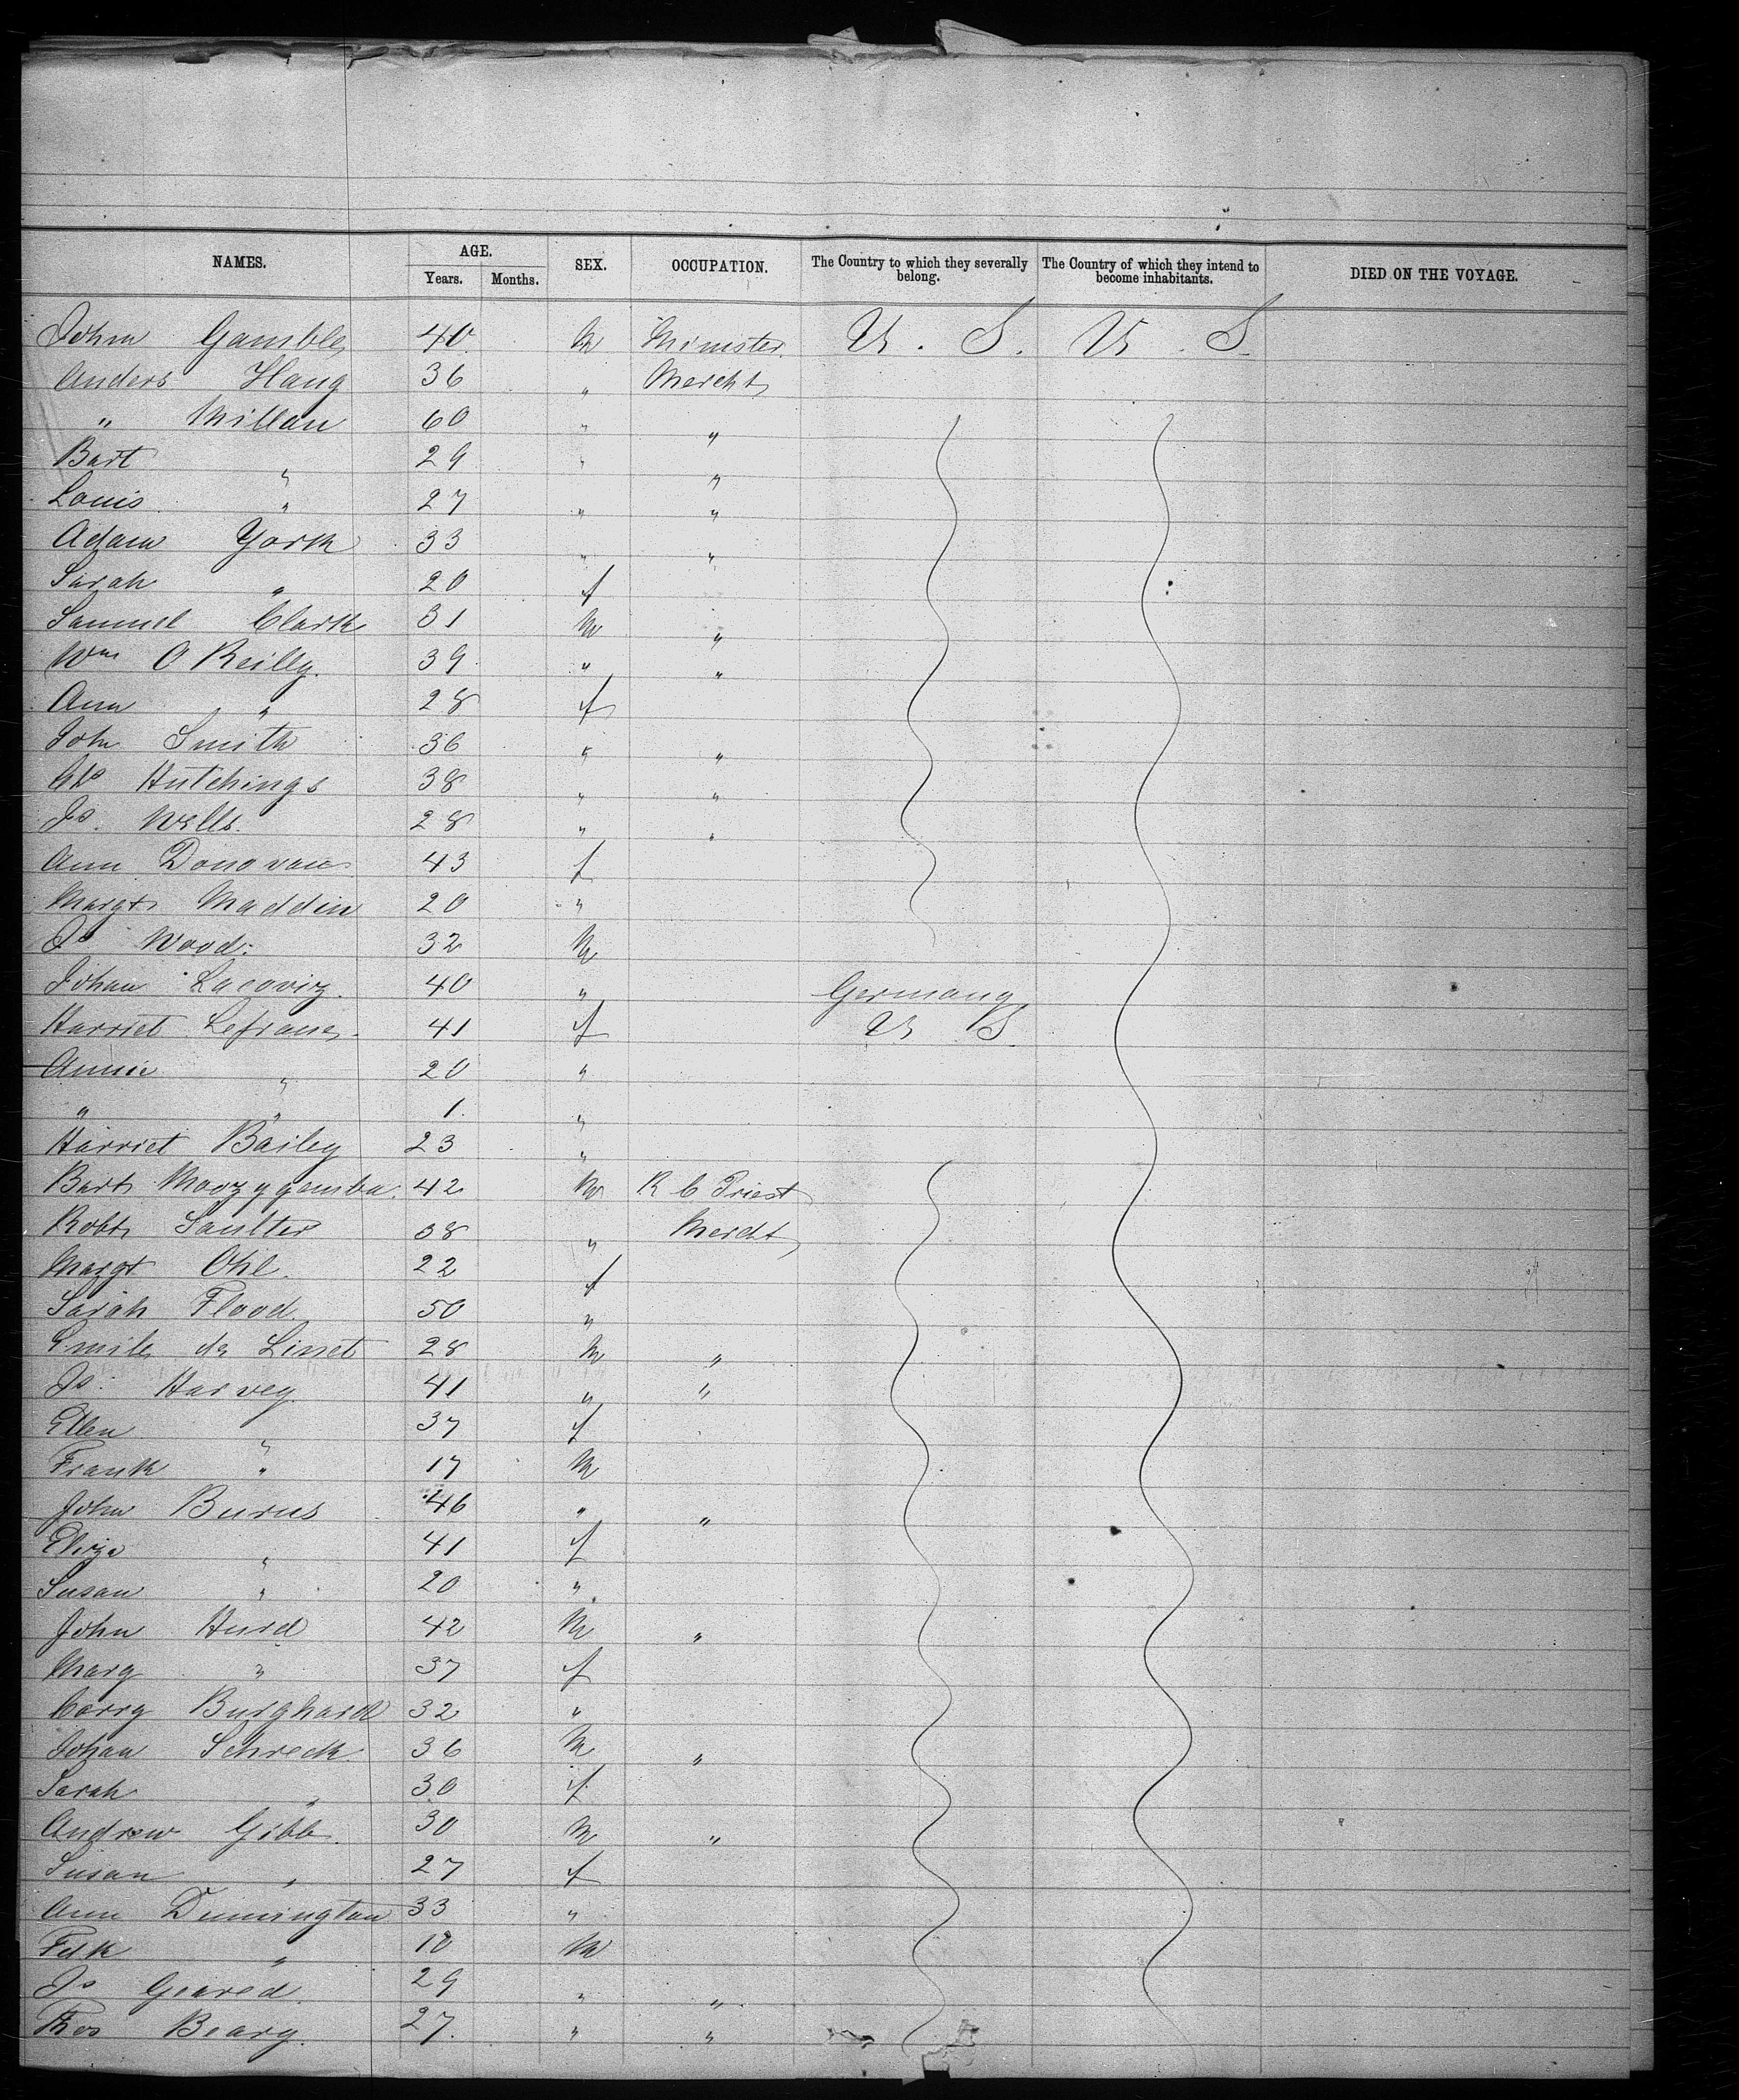 NAMES. AGE. Years. Months. SEX. OCCUPATION. The Country to which they severally belong. The Country of which they intend to become inhabitants. DIED ON THE VOYAGE.
John Gamble 40 M Minister U. S. U. S.
Anders Haug 36 " Mercht
" Millan 60 " "
Bart " 29 " "
Louis " 27 " "
Adam York 33 " "
Sarah " 20 f
Samuel Clark 31 M "
Wm O Reilly. 39 " "
Ann " 28 f
John Smith 36 " "
Hutchings 38 " "
Js. Wells. 28 " "
Ann Donovan 43 f
Margt Maddin 20 "
Js Wood. 32 M
Johan Lacoviz 40 " Germany
Harriet Lefranc 41 f U S
Annie " 20 "
" " 1. "
Harriet Bailey 23 "
Bart Moczygemba. 42 M R C Priest
Robt Saulter 38 " Mercht
Margt Ohl. 22 f
Sarah Flood. 50 "
Emile de Linet 28 M "
Js. Harvey 41 " "
Ellen " 37 f
Frank " 17 M
John Burns 46 " "
Eliza " 41 f
Susan " 20 "
John Hurd 42 M "
Marg " 37 f
Carry Burghard 32 "
Johan Schreck 36 M "
Sarah " 30 f
Andrew Gibb. 30 M "
Susan " 27 f
Ann Dunnington 33 "
Fdk " M
Js Geared 29 " "
Thos Beary. 27. " "